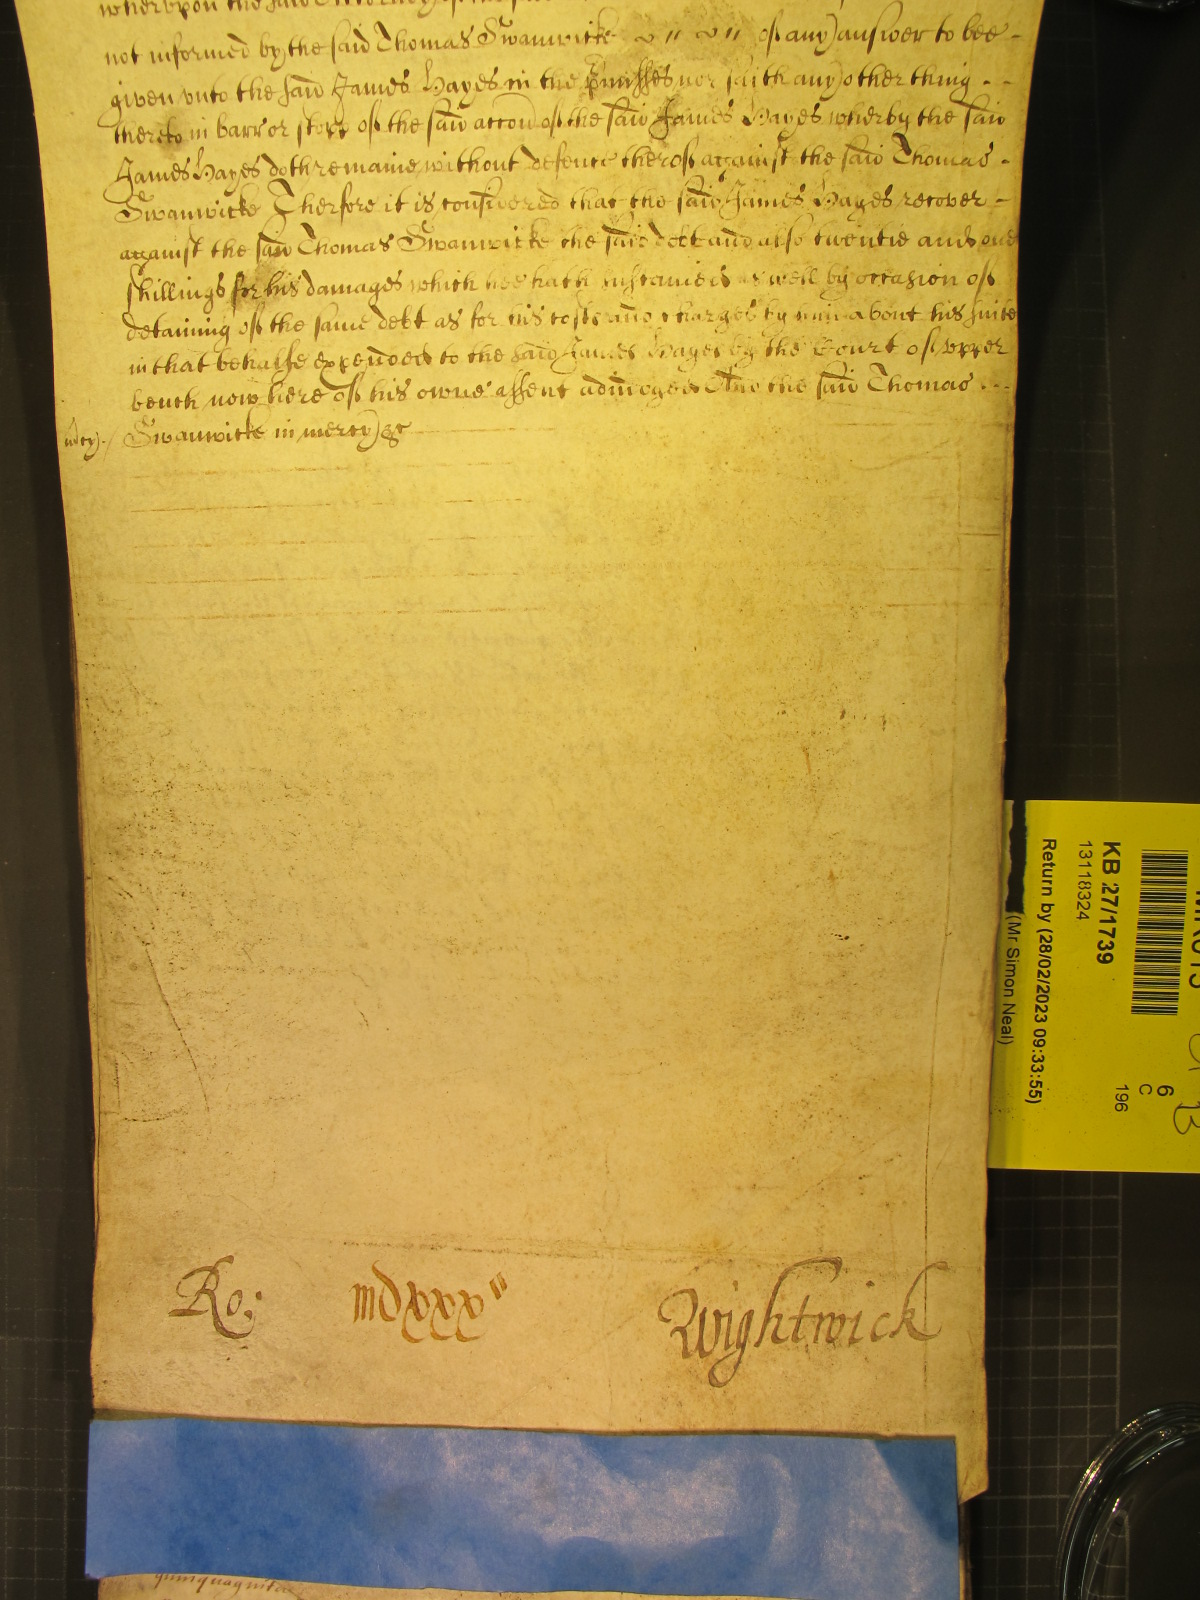 wherupon the said Attorney of the said
not informed by the said Thomas Swanwicke of any answer to bee -
given unto the said James Hayes in the premisses nor saith any other thing - -
thereto in barr or stopp of the said accon of the said James Hayes wherby the said
James Hayes doth remaine without defence therof against the said Thomas -
Swanwicke Therfore it is considered that the said James Hayes recover -
against the said Thomas Swanwicke the said debt and also twentie and one
shillings for his damages which hee hath susteined as well by occasion of
detaining of the same debt as for his costs and charges by him about his suite
in that behalfe expended to the said James Hayes by the Court of upper
bench now here of his owne assent adiudged And the said Thomas - - -
m'cy. / Swanwicke in mercy &c
Ro: mdxxx Wightwick
KB 27/1739
13118324
Return by (28/02/2023 09:33:55)
(Mr Simon Neal)
6
C
196
B
quinquaginta